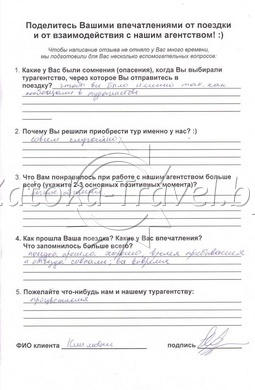 Поделитесь Вашими впечатлениями от поездки
и от взаимодействия с нашим агентством! :)
Чтобы написание отзыва не отняло у Вас много времени,
мы подготовили для Вас несколько вспомогательных вопросов:
1. Какие у Вас были сомнения (опасения), когда Вы выбирали
турагентство, через которое Вы отправитесь в
поездку? чтобы все было именно так, как
пообещали в турагенстве
2. Почему Вы решили приобрести тур именно у нас? :)
совсем случайно
3. Что Вам понравилось при работе с нашим агентством больше
всего (укажите 2-3 основных позитивных момента)?
4. Как прошла Ваша поездка? Какие у Вас впечатления?
Что запомнилось больше всего?
поездка прошла хорошо, время пребывания
и отъезда совпали, все вовремя
5. Пожелайте что-нибудь нам и нашему турагентству:
процветания
ФИО клиента
подпись
Katoka-Travel.by